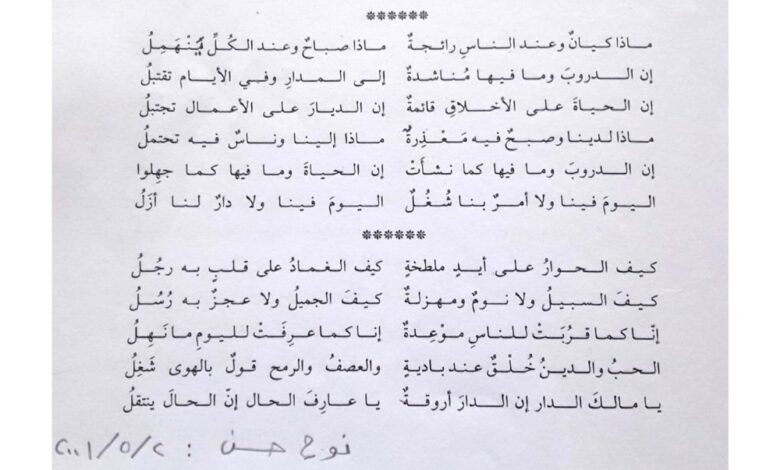 ******
ماذا كيانٌ وعند الناسِ رائجةٌ ماذا صباحٌ وعند الكُلِّ يَنْهَمِلُ
إن الدروبَ وما فيها مُناشدةٌ إلى المدارِ وفي الأيام تقتبلُ
إن الحياةَ على الأخلاقِ قائمةٌ إن الديارَ على الأعمال تجتبلُ
ماذا لدينا وصبحٌ فيه مَعْذِرةٌ ماذا إلينا وناسٌ فيه تحتملُ
إن الدروبَ وما فيها كما نشأتْ إن الحياةَ وما فيها كما جهِلوا
اليومَ فينا ولا أمرٌ بنا شُغُلٌ اليومَ فينا ولا دارٌ لنا أزَلُ
******
كيف الحوارُ على أيدٍ ملطخةٍ كيف الغمادُ على قلبٍ به رجُلُ
كيفَ السبيلُ ولا نومٌ ومهزلةٌ كيفَ الجميلُ ولا عجزٌ به رُسُلُ
إنّا كما قرُبَتْ للناسِ موْعِدةٌ إنا كما عرِفَتْ لليومِ ما نَهِلُ
الحبُ والدينُ خُلْقٌ عند باديةٍ والعصفُ والرمح قولٌ بالهوى شَغِلُ
يا مالكَ الدار إن الدارَ أروقةٌ يا عارفَ الحال إنّ الحالَ ينتقلُ
نوح حسن : ٢٠٠١/٥/٢